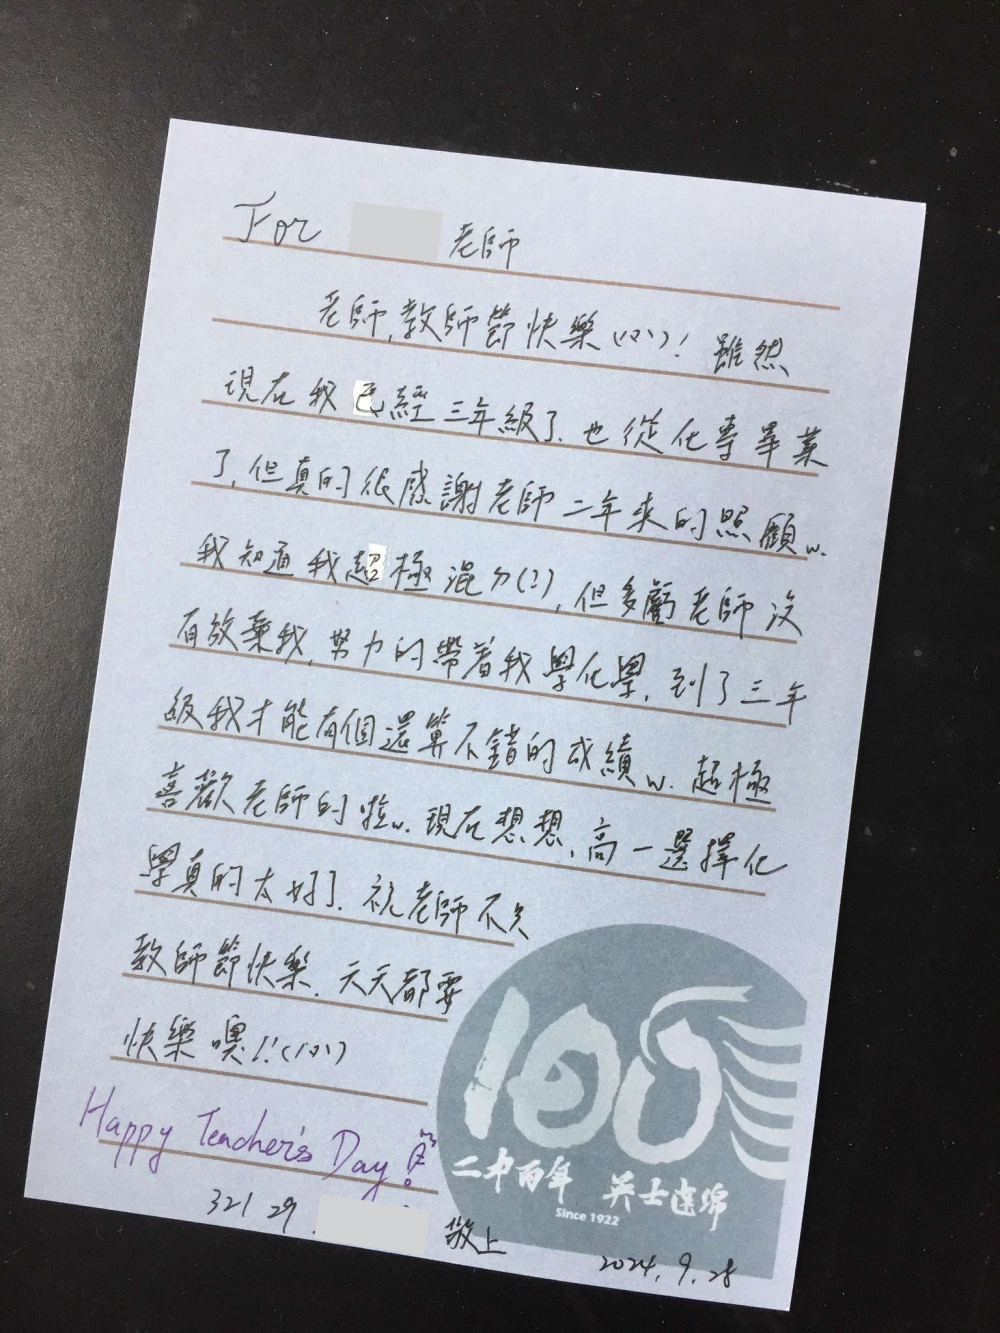 For 老師
老師,教師節快樂(ㅎㅎ)! 雖然
現在我已經三年級了.也從化專畢業
了,但真的很感謝老師二年來的照顧w.
我知道我超極混ㄉ(?),但多虧老師沒
有放棄我,努力的帶著我學化學,到了三年
級我才能有個還算不錯的成績w.超極
喜歡老師的啦w.現在想想,高一選擇化
學真的太好了.祝老師不只
教師節快樂.天天都要
快樂噢!!
Happy Teacher's Day!
100
二中百年 英士達綿
Since 1922
321 29. 敬上
2024.9.28